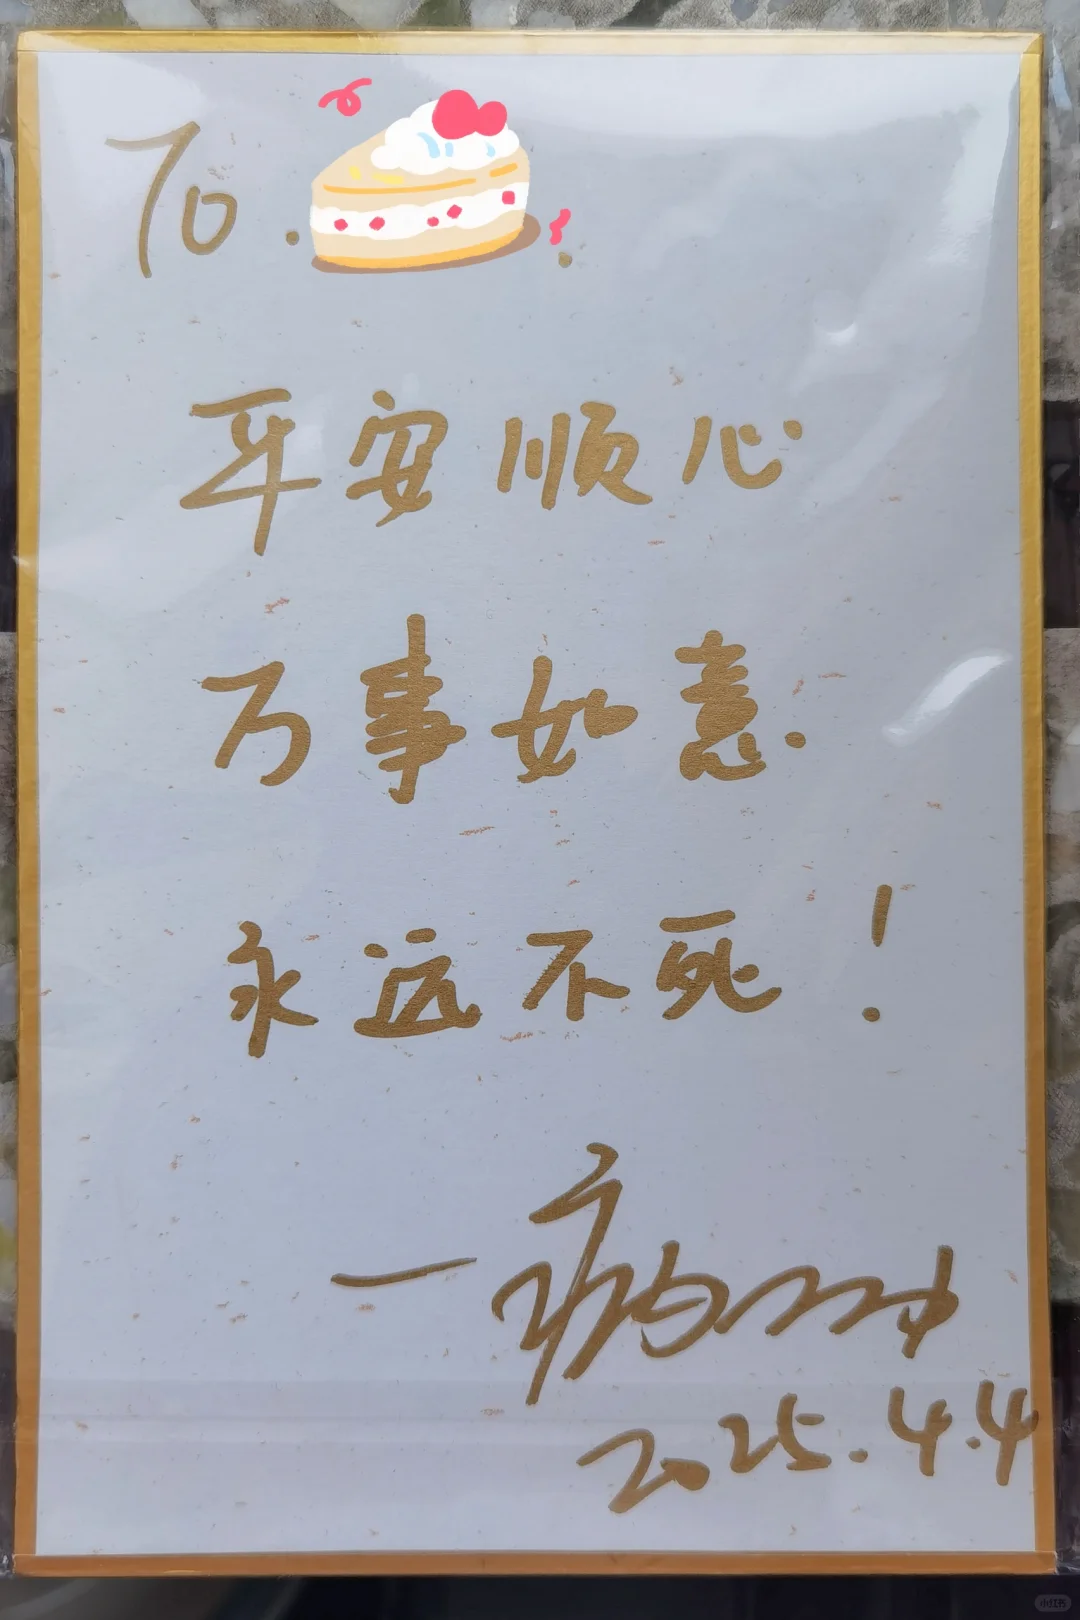 To.
平安顺心
万事如意.
永远不死!
2025.4.4
小红书